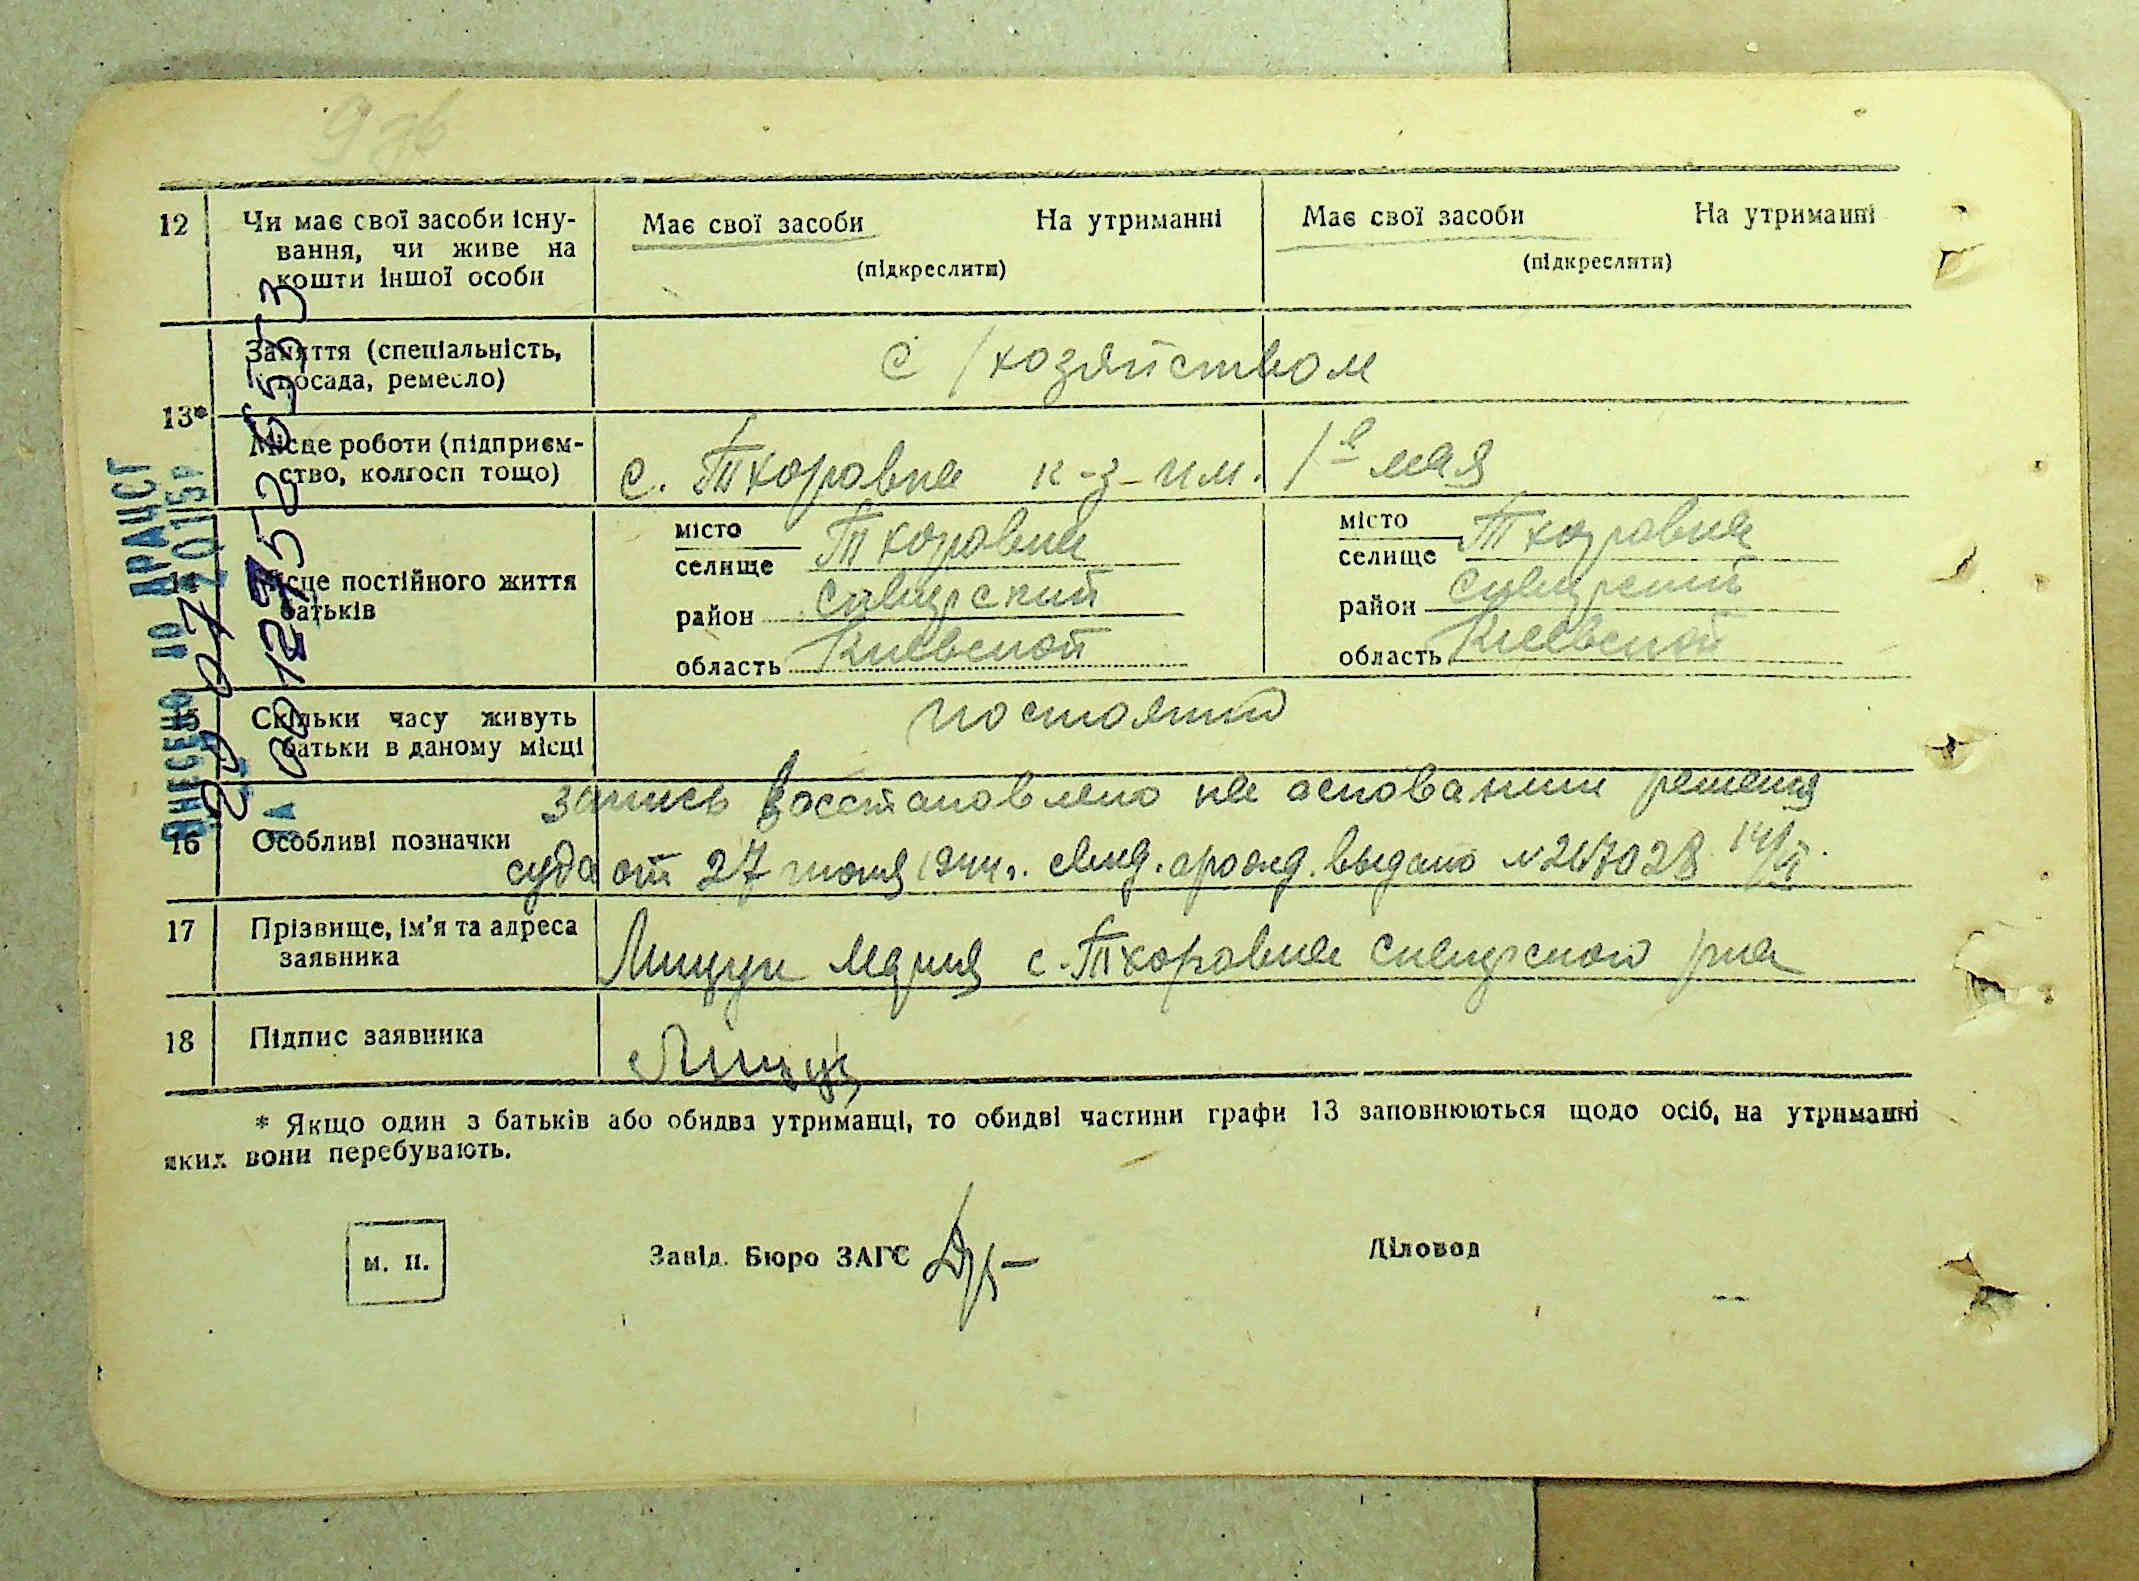 9 зв
12 Чи має свої засоби існу- Має свої засоби На утриманні Має свої засоби На утриманні
вання, чи живе на (підкреслити) (підкреслити)
кошти іншої особи
13* Заняття (спеціальність, с/хозяйством
посада, ремесло)
Місце роботи (підприєм- с. Тхоровка к-з-им. 1е мая
ство, колгосп тощо)
14 Місце постійного життя місто Тхоровка місто Тхоровка
батьків селище селище
район Сквирский район Сквирский
область Киевской область Киевской
15 Скільки часу живуть постоянно
батьки в даному місці
запись восстановлено на основании решения
16 Особливі позначки
суда от 27 июня 1944г. свид. о рожд. выдано № 267028
17 Прізвище, ім'я та адреса Лищук Мария с. Тхоровка Сквирского р-на
заявника
18 Підпис заявника Ліщук
* Якщо один з батьків або обидва утриманці, то обидві частини графи 13 заповнюються щодо осіб, на утриманні
яких вони перебувають.
м. п. Завід. Бюро ЗАГС Діловод
ВНЕСЕНО ДО ДРАЦСГ
2015р
ЗА